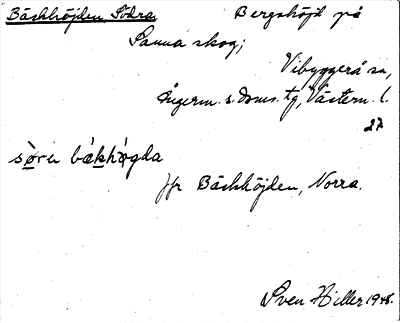 Bäckhöjden, Södra Bergshöjd på
Sanna skog;
Vibyggerå sn,
Ångerm. s. doms. tg, Västern. l.
27
Jfr Bäckhöjden, Norra.
Sven Hiller 1948.